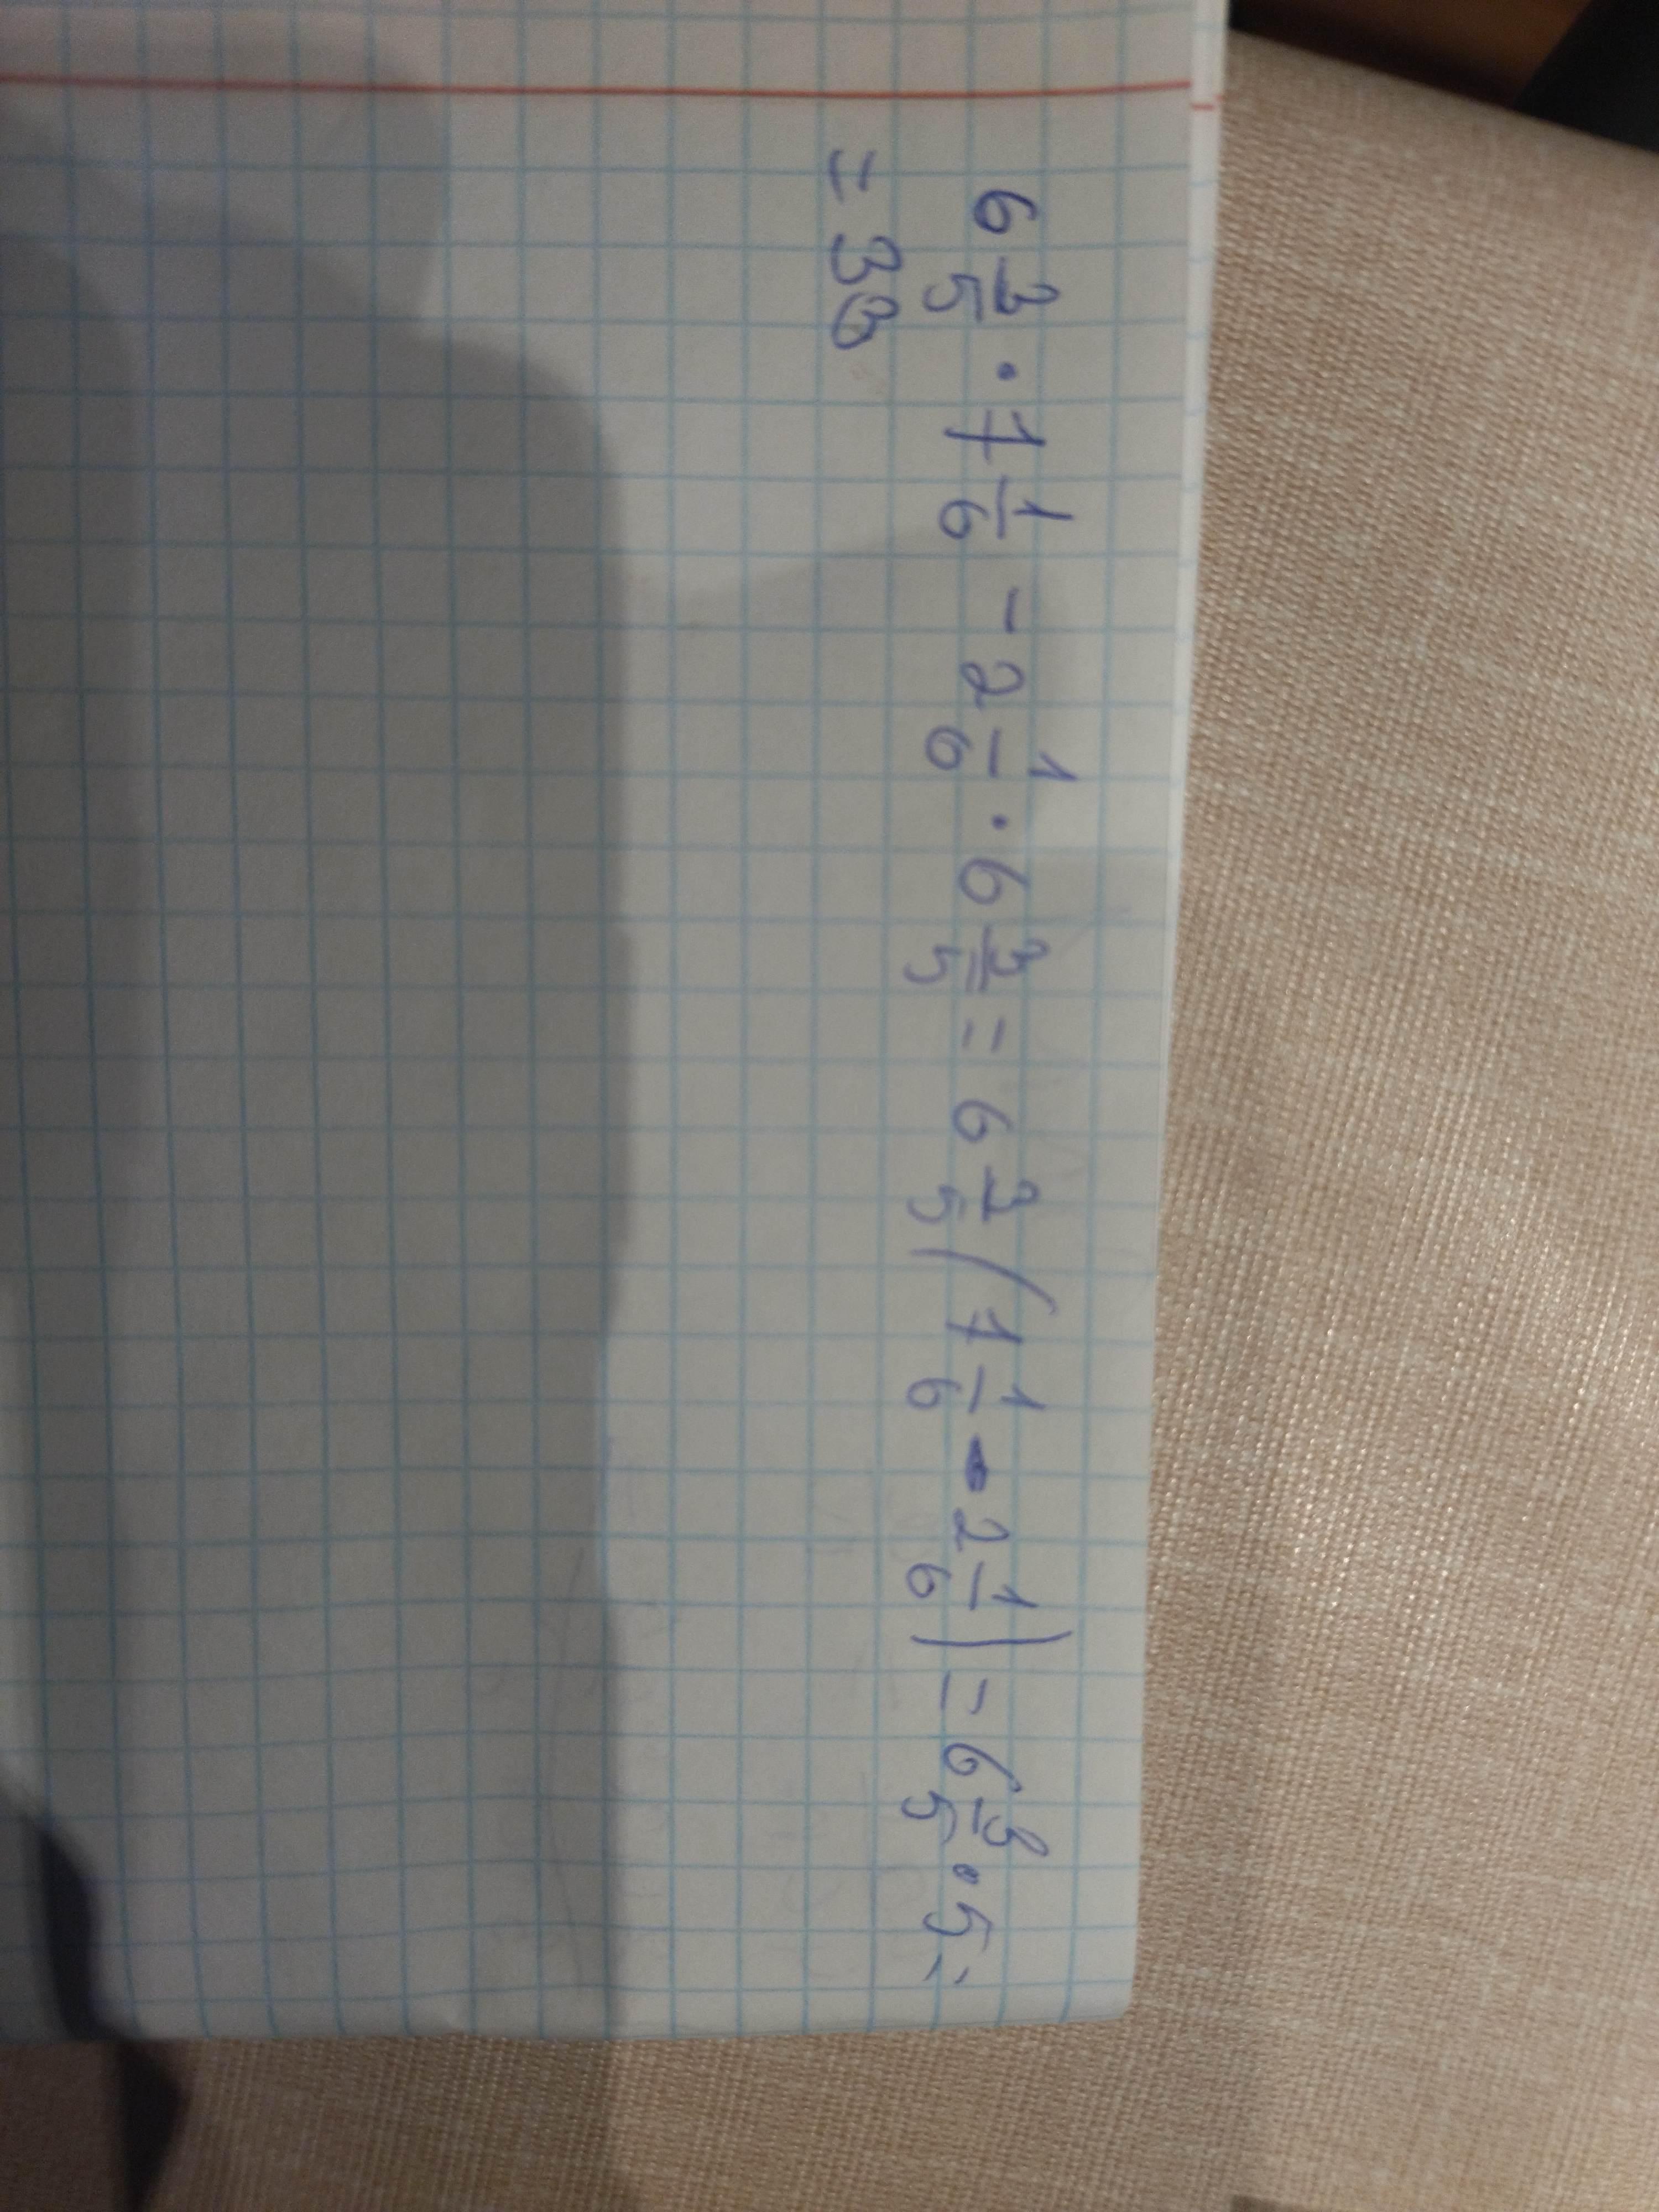 6 3/5 · 7 1/6 - 2 1/6 · 6 3/5 = 6 3/5 (7 1/6 - 2 1/6) = 6 3/5 · 5 =
= 33